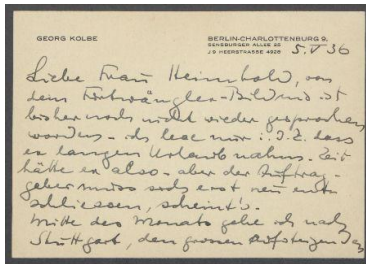 GEORG KOLBE
BERLIN-CHARLOTTENBURG 9,
SENSBURGER ALLEE 25
J 9 HEERSTRASSE 4926
5. V 36
Liebe Frau Heimhold, von
dem Furtwängler-Bildnis ist
bisher noch nicht wieder gesprochen
worden - ich lese nur i. d. Z. dass
er langen Urlaub nahm. Zeit
hätte er also - aber der Auftrag-
geber muss sich erst neu ent-
schliessen, scheint's.
Mitte des Monats gehe ich nach
Stuttgart, den grossen